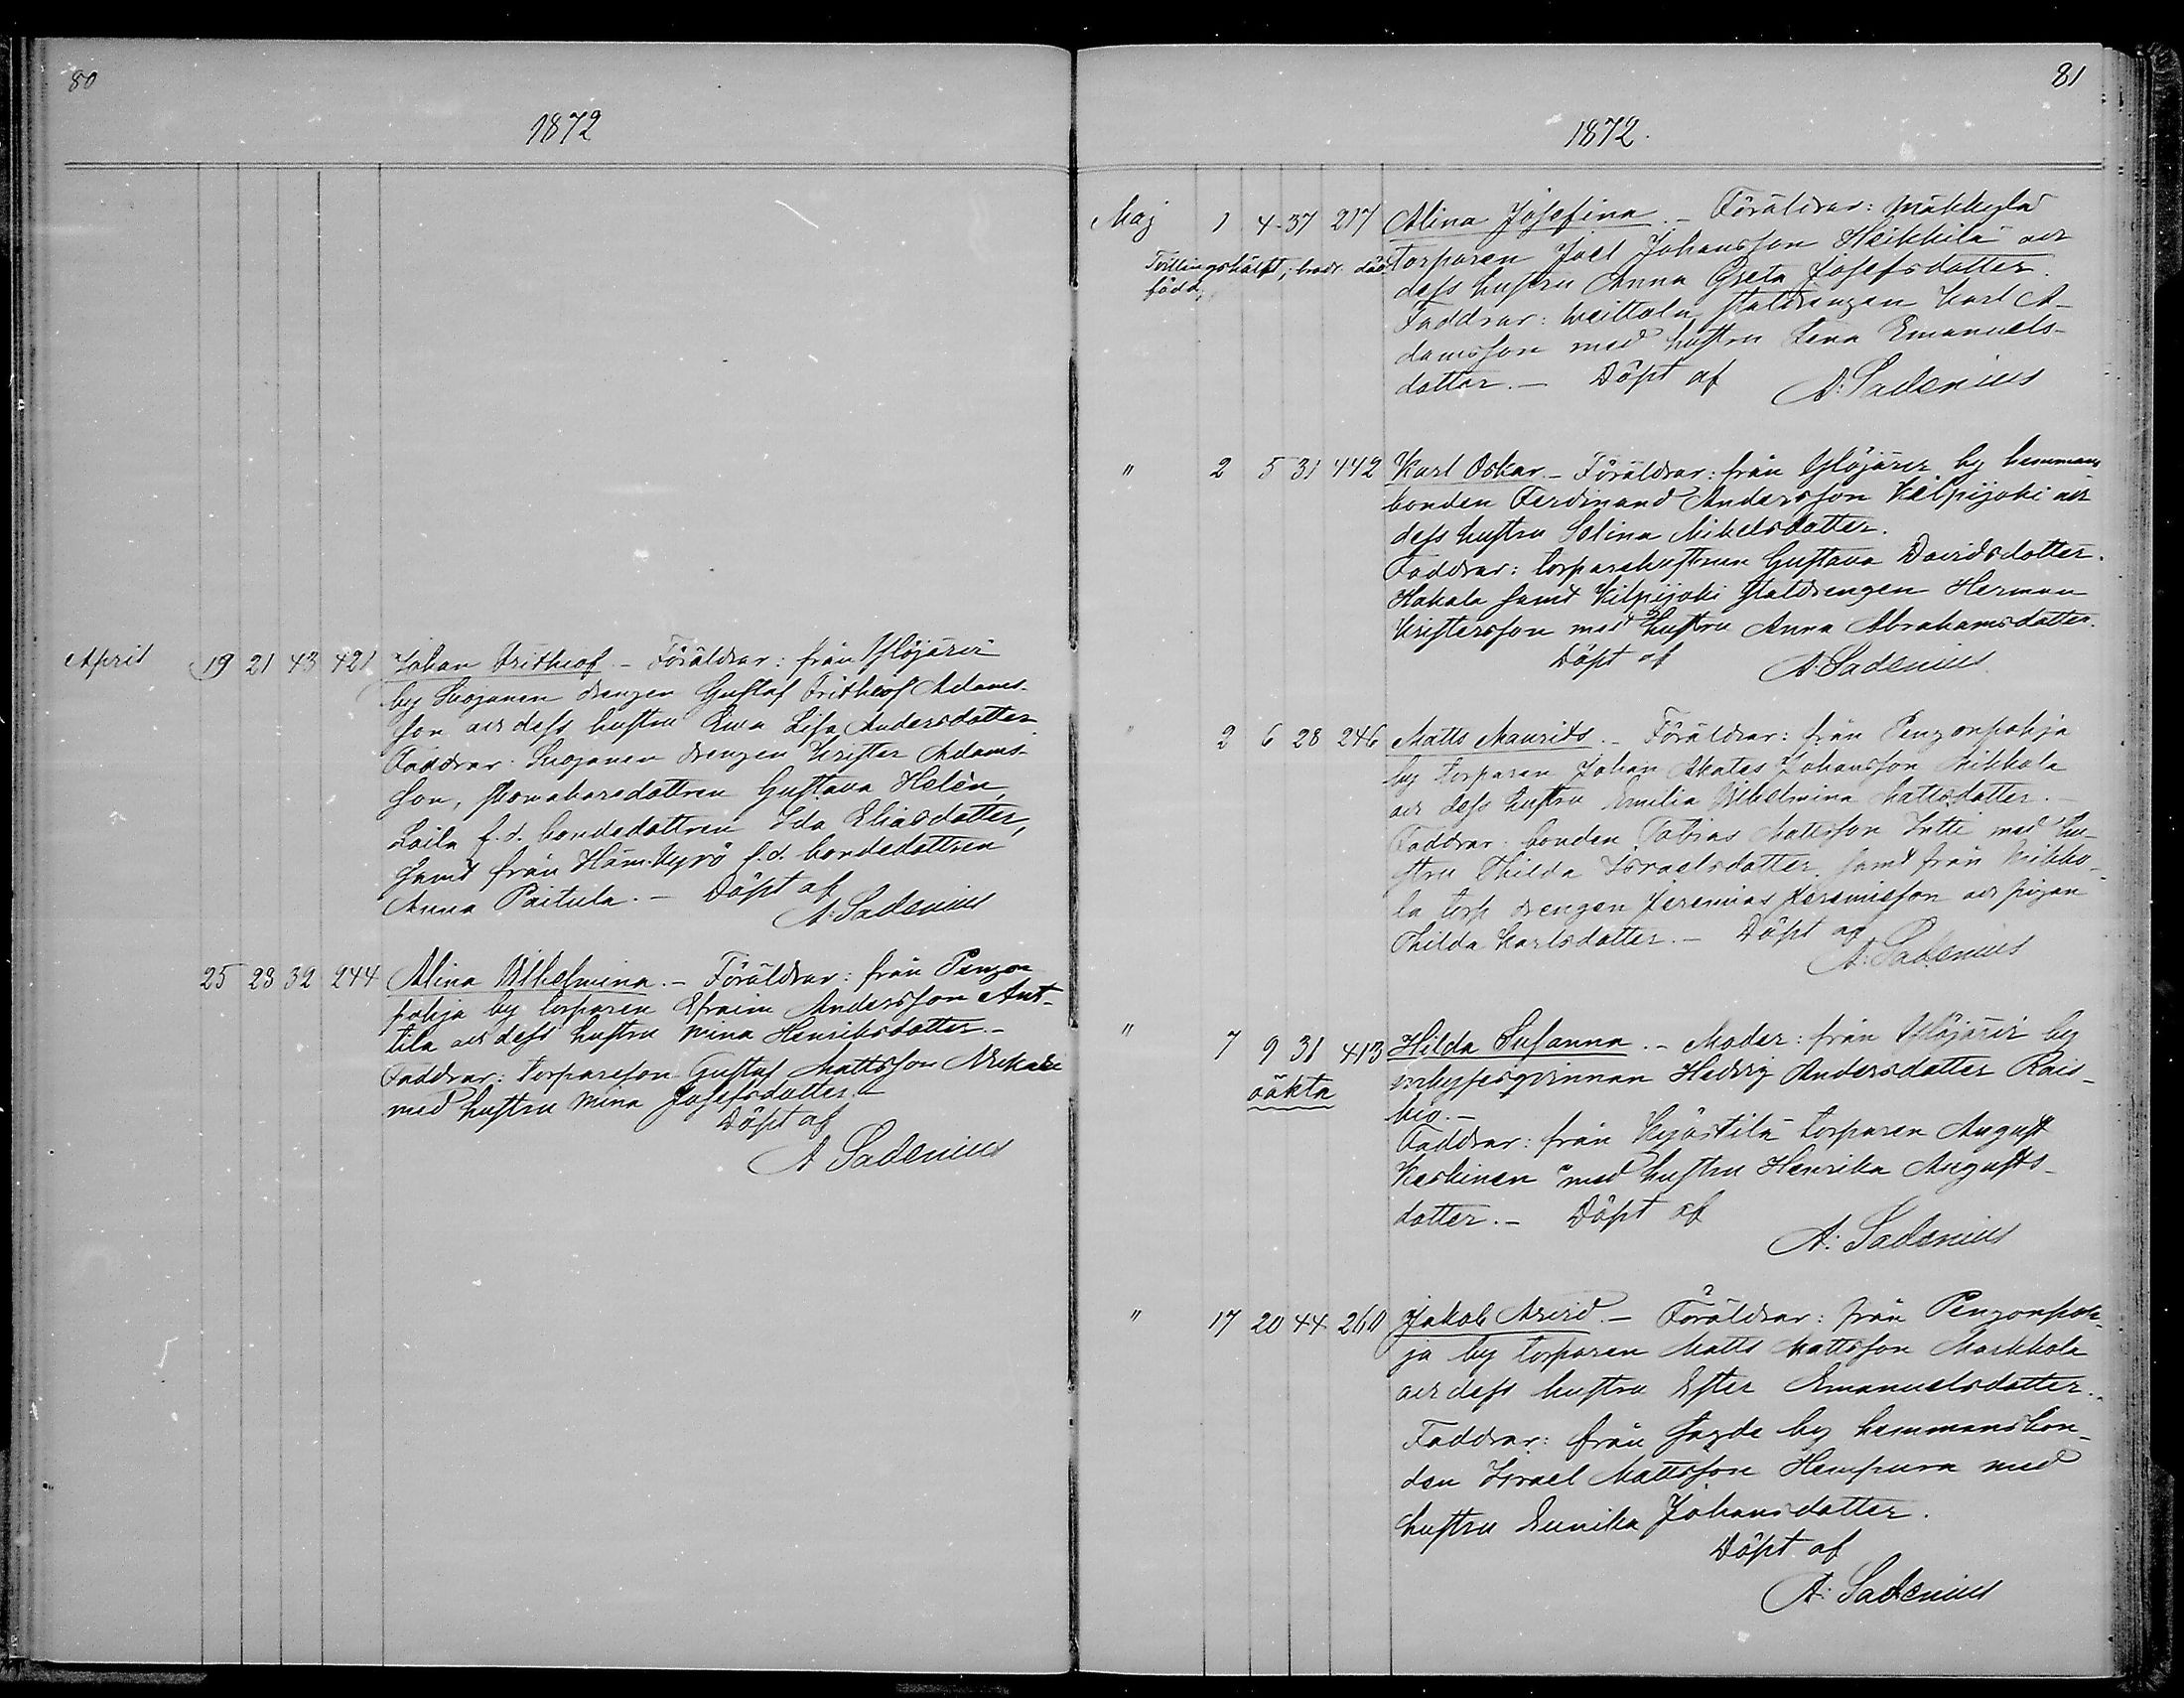 80
1872
April 19 21 43 421 Johan Fridheof. - Föräldrar: från Ylöjärvi
by drengen Gustaf Fridheof Adams-
son och dess hustru Eva Lisa Andersdotter.
Faddrar: drengen Krister Adams-
son, Gustava Helén,
Laila f.d. bondedottren Ida Eliasdotter,
samt från Ham. Kyrö f.d. bondedottren
Anna Paitula. - Döpt af
A. Sadenius
25 28 32 244 Alina Wilhelmina. - Föräldrar: från Pengon
pohja by torparen Efraim Andersson Ant-
tila och dess hustru Mina Henriksdotter. -
Faddrar: torpareson Gustaf Mattsson
med hustru Mina Josefsdotter. -
Döpt af
A Sadenius
81
1872.
Maj 1 4 37 217 Alina Josefina. - Föräldrar: Mäkkylä
Tvillingskälft, torparen Joel Johansson Heikkilä och
född, dess hustru Anna Greta Josefsdotter.
Faddrar: staldrengen Karl A-
damsson med hustru Lena Emanuels-
dotter. - Döpt af A: Sadenius
" 2 5 31 442 Karl Oskar. - Föräldrar: från Ylöjärvi by hemmans
bonden Ferdinand Andersson Kilpijoki och
dess hustru Selina Mikelsdotter.
Faddrar: torparehustrun Gustava Davidsdotter
Hakala samt Kilpijoki staldrengen Herman
Kristersson med hustru Anna Abrahamsdotter.
Döpt af A Sadenius.
" 2 6 28 246 Matts Maurits. - Föräldrar: från Pengonpohja
by torparen Johan Akates Johansson Mikkola
och dess hustru Emilia Wilhelmina Mattsdotter. -
Faddrar: bonden Tobias Mattsson Intti med hu-
stru Thilda Israelsdotter, samt från Mikko-
la torp drengen Jeremias Jeremiasson och pigan
Thilda Karlsdotter. - Döpt af
A: Sadenius
" 7 9 31 413 Hilda Susanna. - Moder: från Ylöjärvi by
oäkta inhysesqvinnan Hedvig Andersdotter Rais-
kio. -
Faddrar: från Kyöstilä torparen August
Keskinen med hustru Henrika Augusts-
dotter. - Döpt af
A: Sadenius
" 17 20 44 260 Jakob Arvid. - Föräldrar: från Pengonpoh-
ja by torparen Matts Mattsson Markkola
och dess hustru Ester Emanuelsdotter. -
Faddrar: från by hemmansbon-
den Israel Mattsson med
hustru Eunika Johansdotter.
Döpt af
A: Sadenius